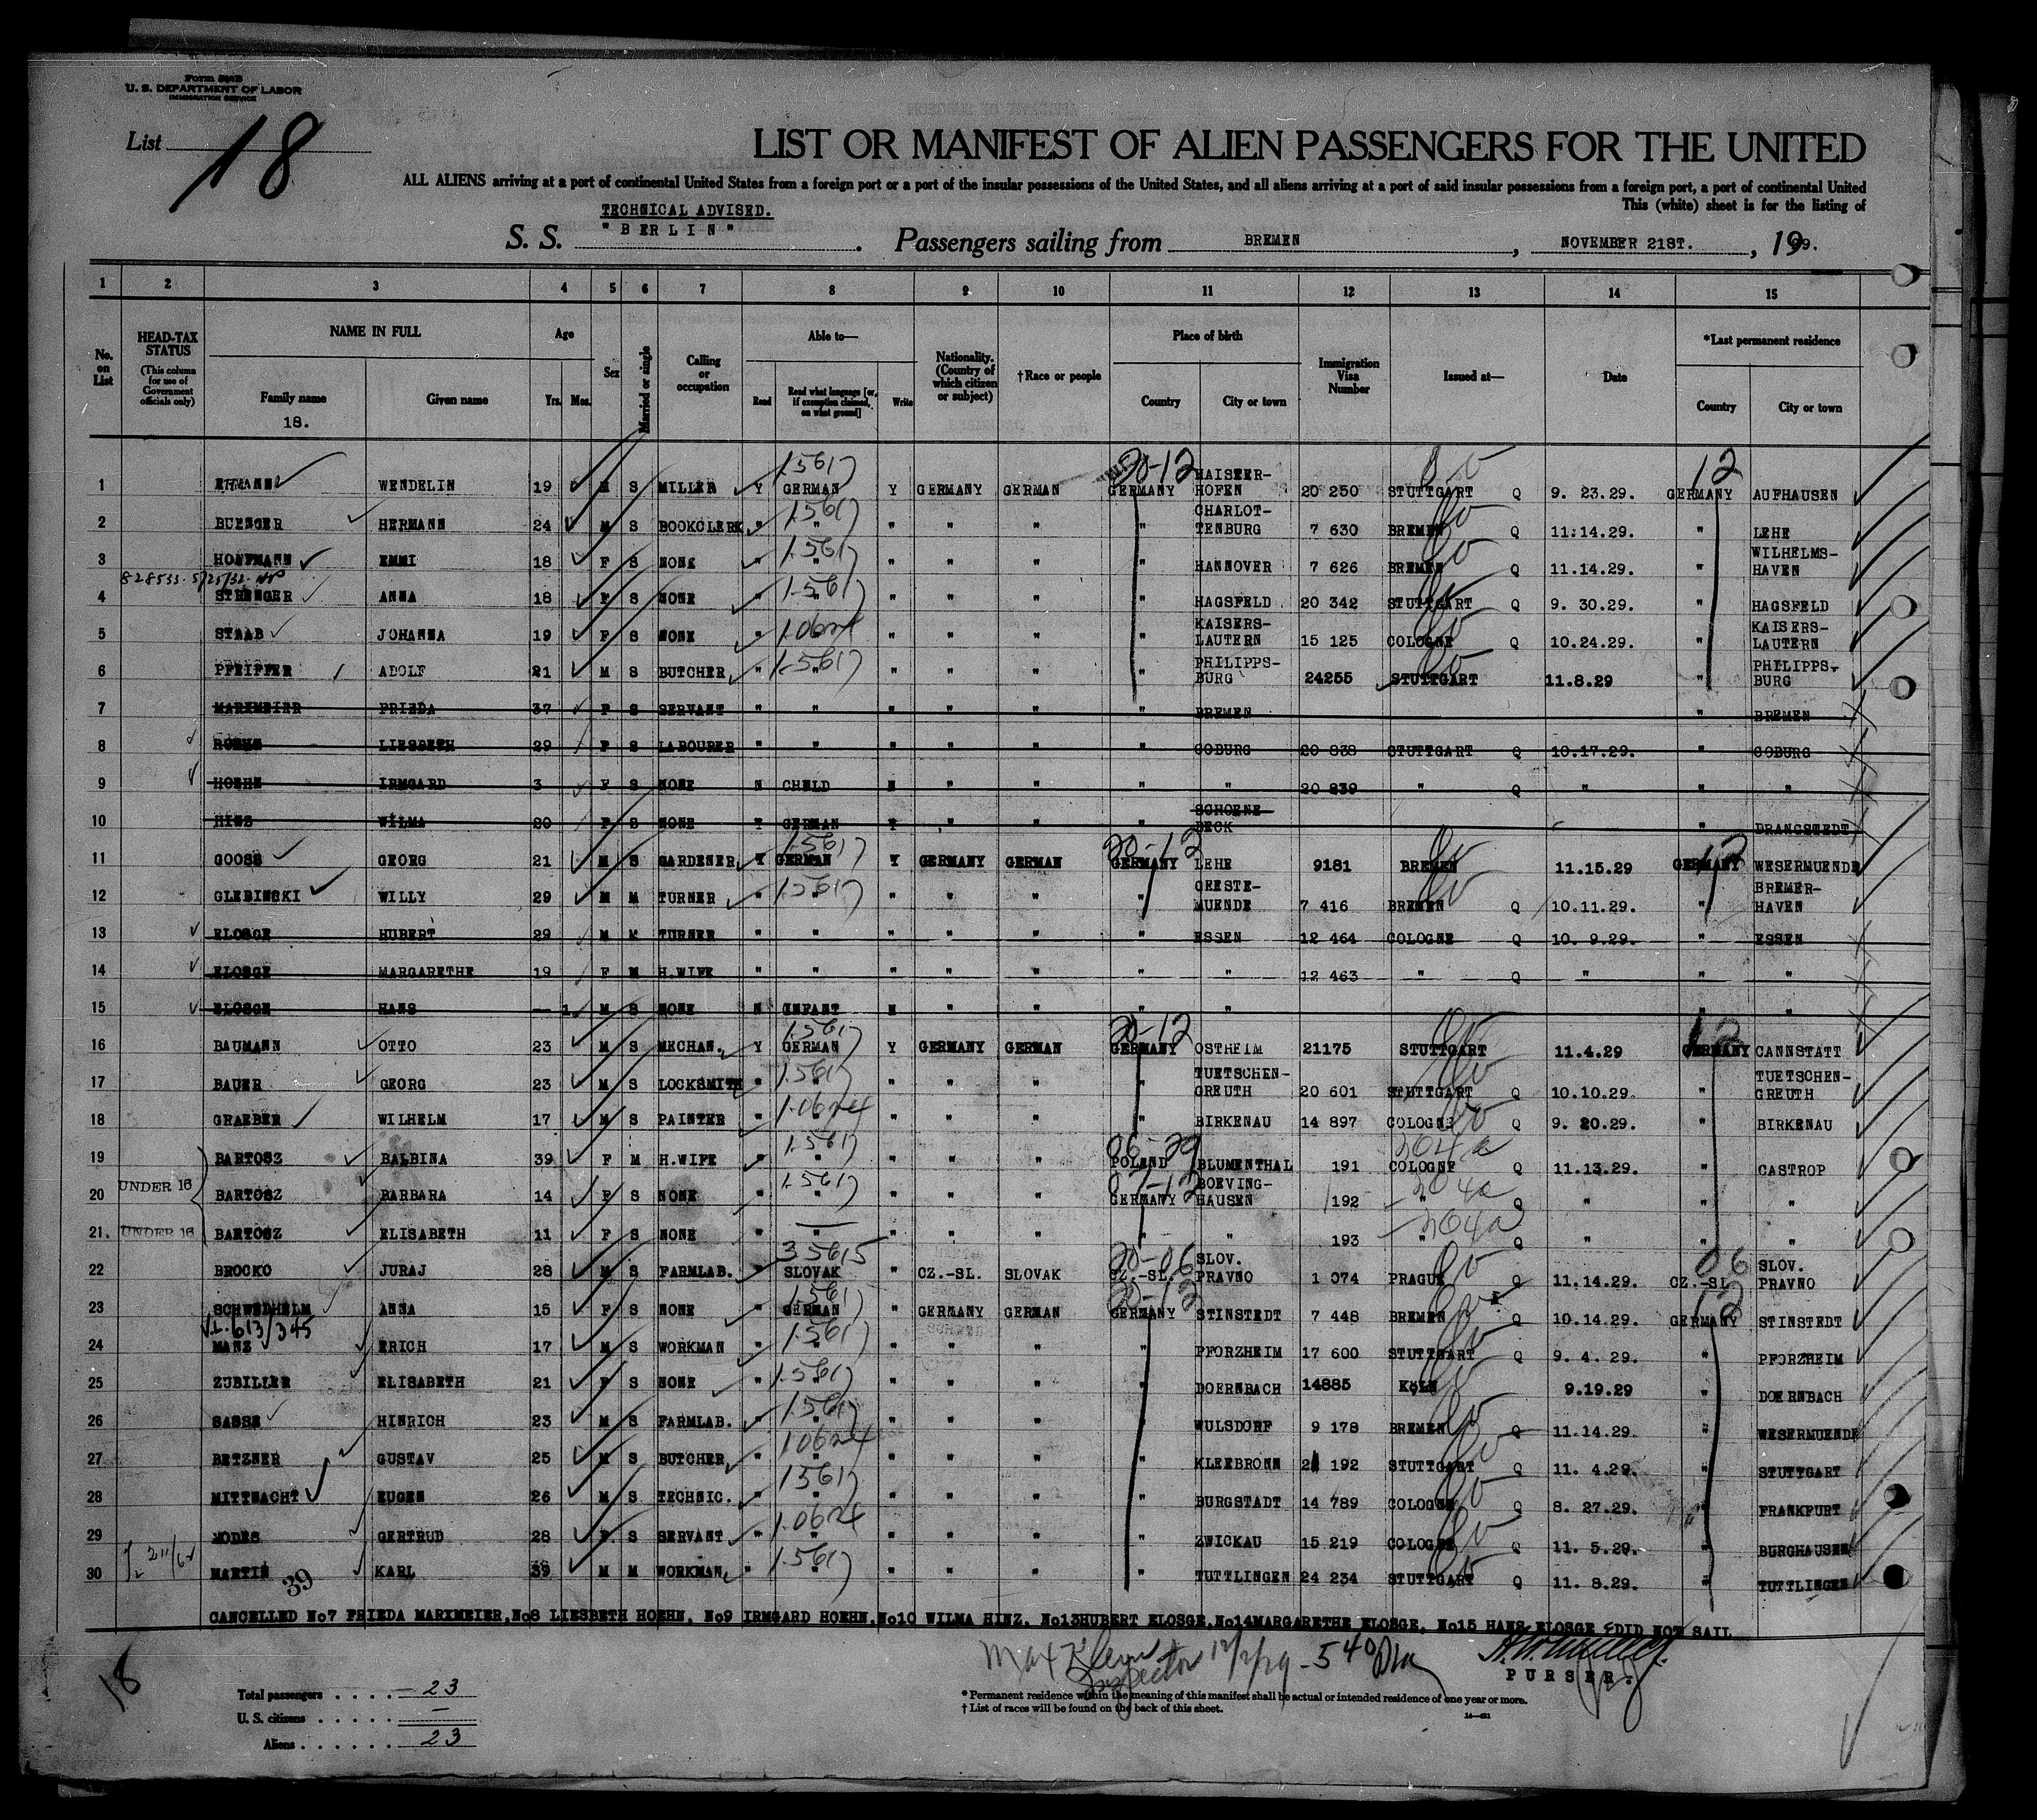 Form 500B
U. S. DEPARTMENT OF LABOR
IMMIGRATION SERVICE
List 18
LIST OR MANIFEST OF ALIEN PASSENGERS FOR THE UNITED
ALL ALIENS arriving at a port of continental United States from a foreign port or a port of the insular possessions of the United States, and all aliens arriving at a port of said insular possessions from a foreign port, a port of continental United
This (white) sheet is for the listing of
TECHNICAL ADVISED.
S. S. "BERLIN". Passengers sailing from BREMEN, NOVEMBER 21ST., 1929.
1 2 3 4 5 6 7 8 9 10 11 12 13 14 15
No. on List
HEAD-TAX STATUS
(This column for use of Government officials only)
NAME IN FULL
Family name
18.
Given name
Age
Yrs. Mos.
Sex
Married or single
Calling or occupation
Able to—
Read
Read what language [or, if exemption claimed, on what ground]
Write
Nationality. (Country of which citizen or subject)
†Race or people
Place of birth
Country City or town
Immigration Visa Number
Issued at—
Date
*Last permanent residence
Country City or town
1 EHMANN WENDELIN 19 M S MILLER Y GERMAN Y GERMANY GERMAN GERMANY HAISTER-HOFEN 20 250 STUTTGART Q 9. 23.29. GERMANY AUFHAUSEN
2 BUENGER HERMANN 24 M S BOOKCLERK " " " " " " CHARLOT-TENBURG 7 630 BREMEN Q 11:14.29. " LEHE
3 HOFFMANN EMMI 18 F S NONE " " " " " " HANNOVER 7 626 BREMEN Q 11.14.29. " WILHELMS-HAVEN
828533. 5/25/32.
4 STENGER ANNA 18 F S NONE " " " " " " HAGSFELD 20 342 STUTTGART Q 9. 30.29. " HAGSFELD
5 STAAB JOHANNA 19 F S NONE " " " " " " KAISERS-LAUTERN 15 125 COLOGNE Q 10.24.29. " KAISERS-LAUTERN
6 PFEIFFER ADOLF 21 M S BUTCHER " " " " " " PHILIPPS-BURG 24255 STUTTGART 11.8.29 " PHILIPPS-BURG
7 MARXMEIER FRIEDA 37 F S SERVANT " " " " " " BREMEN " BREMEN
8 HOEHN LIESBETH 29 F S LABOURER " " " " " " COBURG 20 838 STUTTGART Q 10.17.29. " COBURG
9 HOEHN IRMGARD 3 F S NONE N CHILD N " " " " 20 839 " Q " " "
10 HINZ WILMA 20 F S NONE Y GERMAN Y " " " SCHOENE-BECK " DRANGSTEDT
11 GOOSS GEORG 21 M S GARDENER Y GERMAN Y GERMANY GERMAN GERMANY LEHE 9181 BREMEN 11.15.29 GERMANY WESERMUENDE
12 GLEBINSKI WILLY 29 M M TURNER " " " " " " GEESTE-MUENDE 7 416 BREMEN Q 10.11.29. " BREMER-HAVEN
13 ELOSGE HUBERT 29 M M TURNER " " " " " " ESSEN 12 464 COLOGNE Q 10. 9.29. " ESSEN
14 ELOSGE MARGARETHE 19 F M H.WIFE " " " " " " " 12 463 " Q " " "
15 ELOSGE HANS — 1 M S NONE N INFANT N " " " " " "
16 BAUMANN OTTO 23 M S MECHAN. Y GERMAN Y GERMANY GERMAN GERMANY OSTHEIM 21175 STUTTGART 11.4.29 GERMANY CANNSTATT
17 BAUER GEORG 23 M S LOCKSMITH " " " " " " TUETSCHEN-GREUTH 20 601 STUTTGART Q 10.10.29. " TUETSCHEN-GREUTH
18 GRAEBER WILHELM 17 M S PAINTER " " " " " " BIRKENAU 14 897 COLOGNE Q 9. 20.29. " BIRKENAU
19 BARTOSZ BALBINA 39 F M H.WIFE " " " " " POLAND BLUMENTHAL 191 COLOGNE Q 11.13.29. " CASTROP
20 UNDER 16 BARTOSZ BARBARA 14 F S NONE " " " " " GERMANY BOEVING-HAUSEN 192 " Q " " "
21. UNDER 16 BARTOSZ ELISABETH 11 F S NONE " " " " " " " 193 " Q " " "
22 BROCKO JURAJ 28 M S FARMLAB. " SLOVAK " CZ.-SL. SLOVAK CZ.-SL. SLOV. PRAVNO 1 074 PRAGUE Q 11.14.29. CZ.-SL. SLOV. PRAVNO
23 SCHWEDHELM ANNA 15 F S NONE " GERMAN " GERMANY GERMAN GERMANY STINSTEDT 7 448 BREMEN Q 10.14.29. GERMANY STINSTEDT
V.L. 613/345
24 MANZ ERICH 17 M S WORKMAN " " " " " " PFORZHEIM 17 600 STUTTGART Q 9. 4. 29. " PFORZHEIM
25 ZUBILLER ELISABETH 21 F S NONE " " " " " " DOERNBACH 14885 KÖLN 9.19.29 " DOERNBACH
26 SASSE HINRICH 23 M S FARMLAB. " " " " " " WULSDORF 9 178 BREMEN Q 11.14.29. " WESERMUENDE
27 BETZNER GUSTAV 25 M S BUTCHER " " " " " " KLEEBRONN 21 192 STUTTGART Q 11. 4.29. " STUTTGART
28 MITTNACHT EUGEN 26 M S TECHNIC. " " " " " " BURGSTADT 14 789 COLOGNE Q 8. 27.29. " FRANKFURT
29 MODES GERTRUD 28 F S SERVANT " " " " " " ZWICKAU 15 219 COLOGNE Q 11. 5.29. " BURGHAUSEN
30 MARTIN KARL 39 M M WORKMAN " " " " " " TUTTLINGEN 24 234 STUTTGART Q 11. 8.29. " TUTTLINGEN
39
CANCELLED No7 FRIEDA MARXMEIER, No8 LIESBETH HOEHN, No9 IRMGARD HOEHN, No10 WILMA HINZ, No13HUBERT ELOSGE, No14MARGARETHE ELOSGE, No15 HANS ELOSGE DID NOT SAIL
Max Klein
Inspector 12/2/29 - 5 40 PM
PURSER.
18
Total passengers . . . . 23
U. S. citizens . . . . . —
Aliens . . . . . . 23
* Permanent residence within the meaning of this manifest shall be actual or intended residence of one year or more.
† List of races will be found on the back of this sheet.